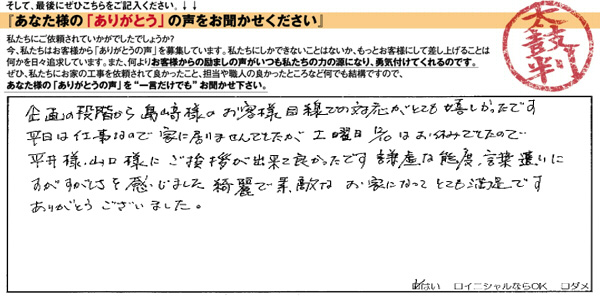 そして、最後にぜひこちらをご記入ください。
『あなた様の「ありがとう」の声をお聞かせください』
私たちにご依頼されていかがでしたでしょうか?
今、私たちはお客様から「ありがとうの声」を募集しています。私たちにしかできないことはないか、もっとお客様にして差し上げることは
何かを日々追求しています。また、何よりお客様からの励ましの声がいつも私たちの力の源になり、勇気付けてくれるのです。
ぜひ、私たちにお家の工事を依頼されて良かったこと、担当や職人の良かったところなど何でも結構ですので、
あなた様の「ありがとうの声」を"一言だけでも"お聞かせ下さい。
太鼓判
企画の段階から島崎様のお客様目線での対応がとても嬉しかったです
平日は仕事なので家に居りませんでしたが 土曜日 はお休みでしたので
平井様、山口様にご挨拶が出来て良かったです 謙虚な態度、言葉遣いに
すがすがしさを感じました 綺麗で素敵なお家になってとても満足です
ありがとうございました。
はい ロイニシャルならOK ロダメ